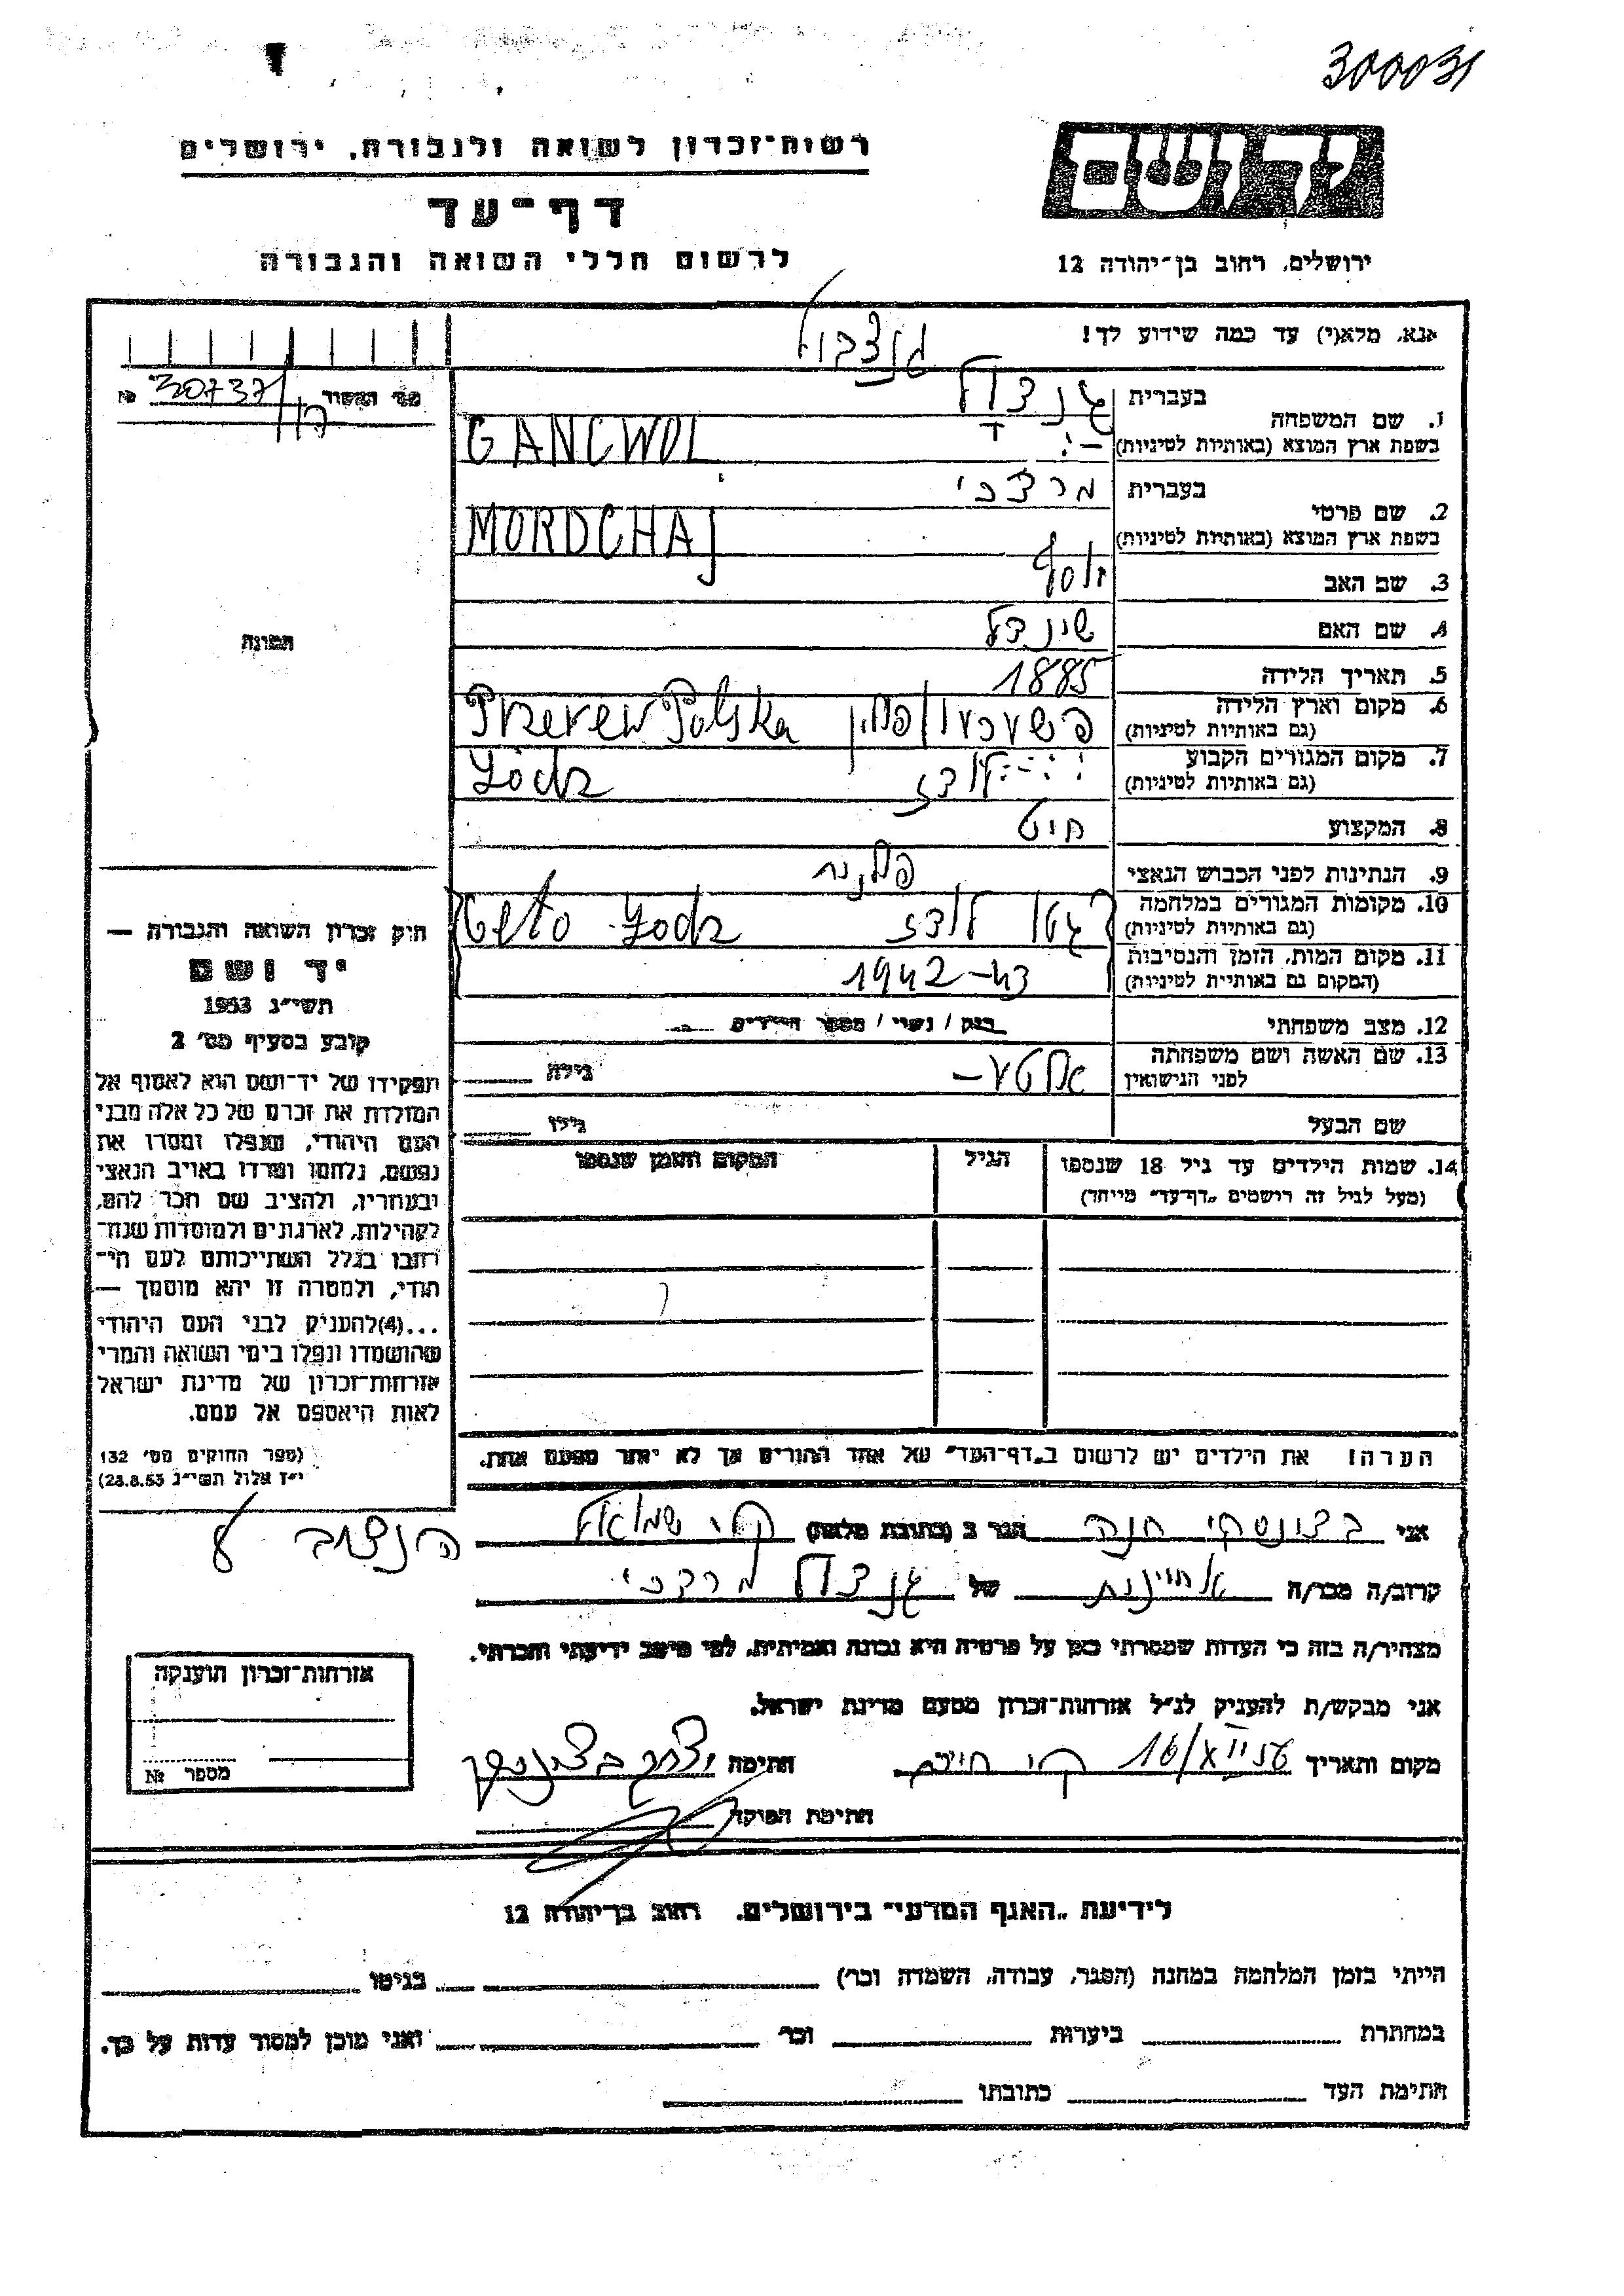 300031
רשות־זכרון לשואה ולגבורה, ירושלים
יד ושם
דף־עד
לרשום חללי השואה והגבורה
ירושלים, רחוב בן־יהודה 12
אנא, מלא(י) עד כמה שידוע לך!
גנצבול
מס׳ האסוף 30737/ №
1. שם המשפחה בעברית גנצול
בשפת ארץ המוצא (באותיות לטיניות) GANCWOL
2. שם פרטי בעברית מרדכי
בשפת ארץ המוצא (באותיות לטיניות) MORDCHAJ
3. שם האב יוסף
4. שם האם שינדל
5. תאריך הלידה 1885
6. מקום וארץ הלידה פולין Polska
(גם באותיות לטיניות)
7. מקום המגורים הקבוע לודז Łódz
(גם באותיות לטיניות)
8. המקצוע חיט
9. הנתינות לפני הכבוש הנאצי
10. מקומות המגורים במלחמה גטו לודז Geto Łodz
(גם באותיות לטיניות)
11. מקום המות, הזמן והנסיבות 1942-43
(המקום גם באותיות לטיניות)
12. מצב משפחתי רווק / נשוי / מספר הילדים
13. שם האשה ושם משפחתה גילה
לפני הנישואין
שם הבעל גילו
14. שמות הילדים עד גיל 18 שנספו הגיל המקום והזמן שנספו
(מעל לגיל זה רושמים „דף־עד" מיוחד)
הערה! את הילדים יש לרשום ב„דף־העד" של אחד ההורים אך לא יותר מפעם אחת.
תמונה
חוק זכרון השואה והגבורה —
יד ושם
תשי״ג 1953
קובע בסעיף מס׳ 2
תפקידו של יד־ושם הוא לאסוף אל
המולדת את זכרם של כל אלה מבני
העם היהודי, שנפלו ומסרו את
נפשם, נלחמו ומרדו באויב הנאצי
ובעוזריו, ולהציב שם וזכר להם,
לקהילות, לארגונים ולמוסדות שנח־
רבו בגלל השתייכותם לעם הי־
הודי, ולמטרה זו יהא מוסמך —
...(4) להעניק לבני העם היהודי
שהושמדו ונפלו בימי השואה והמרי
אזרחות־זכרון של מדינת ישראל
לאות היאספם אל עמם.
(ספר החוקים מס׳ 132
י״ז אלול תשי״ג 28.8.53)
אני חנה הגר ב (כתובת מלאה) שמואל
קרוב/ה מכר/ה של גנצול מרדכי
מצהיר/ה בזה כי העדות שמסרתי כאן על פרטיה היא נכונה ואמיתית, לפי מיטב ידיעתי והכרתי.
אני מבקש/ת להעניק לנ״ל אזרחות־זכרון מטעם מדינת ישראל.
מקום ותאריך חתימה
חתימת הפוקד
אזרחות־זכרון הוענקה
מספר №
לידיעת „האגף המדעי" בירושלים, רחוב בן־יהודה 12
הייתי בזמן המלחמה במחנה (הסגר, עבודה, השמדה וכו׳) בגיטו
במחתרת ביערות וכו׳ ואני מוכן למסור עדות על כך.
חתימת העד כתובתו